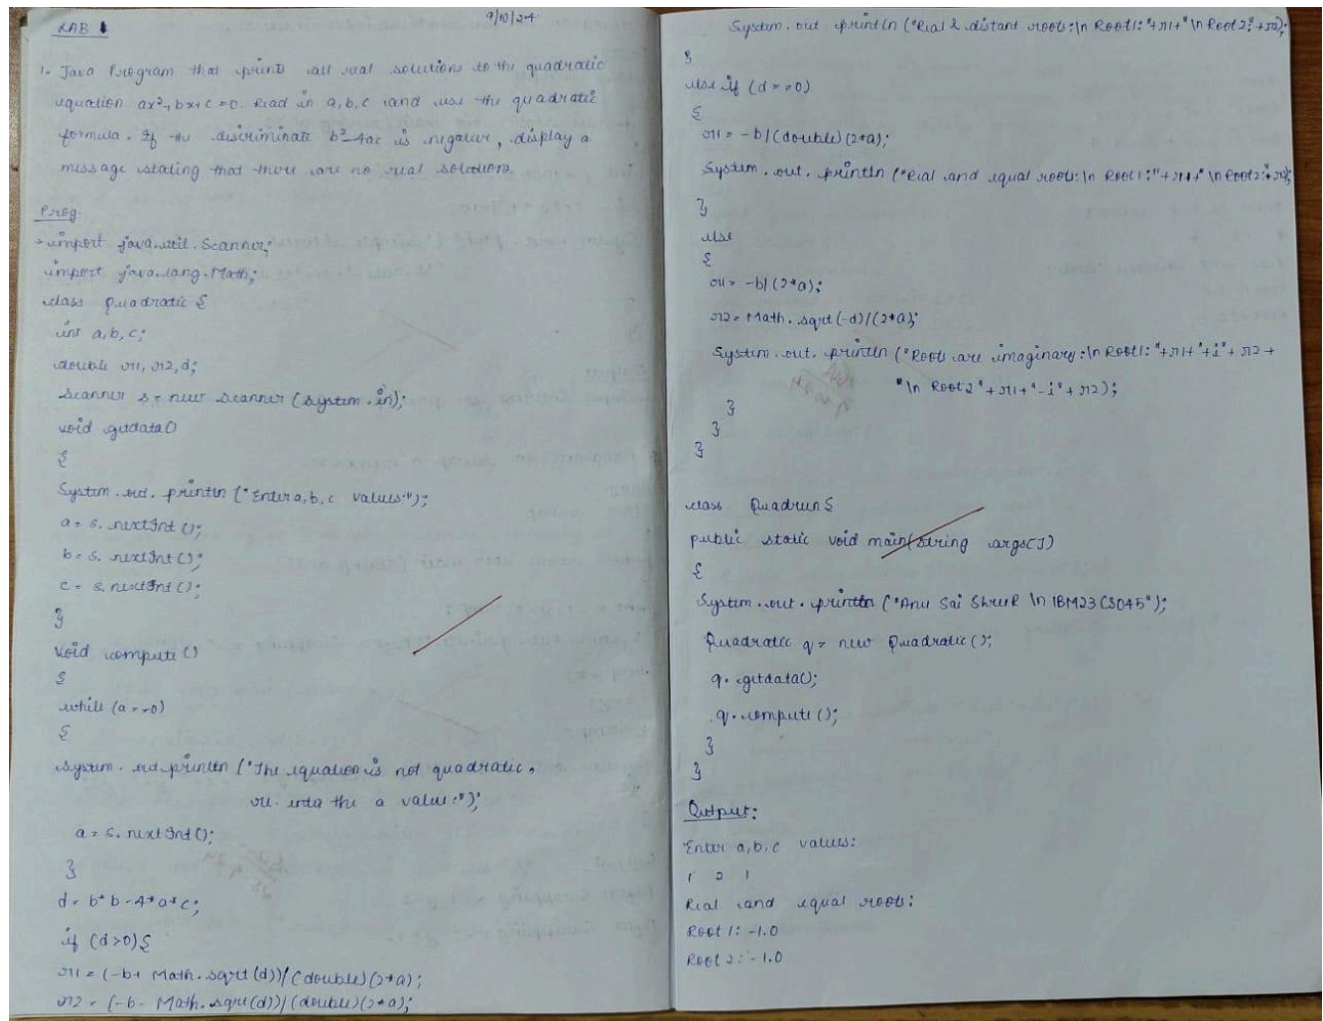 LAB 1
9/10/24
1. Java Program that prints all real solutions to the quadratic
equation ax²+bx+c=0. Read in a,b,c and use the quadratic
formula. If the discriminate b²-4ac is negative, display a
message stating that there are no real solutions.
Prog
import java.util.Scanner;
import java.lang.Math;
class Quadratic {
int a,b,c;
double r1, r2, d;
Scanner s= new Scanner (System.in);
void getdata()
{
System.out.println ("Enter a,b,c values:");
a= s.nextInt ();
b= s.nextInt ();
c= s.nextInt ();
}
void compute ()
{
while (a==0)
{
System.out.println ("The equation is not quadratic,
re. enta the a value:");
a= s.nextInt ();
}
d= b*b-4*a*c;
if (d>0) {
r1 = (-b+ Math.sqrt (d))/(double)(2*a);
r2 = (-b- Math.sqrt(d))/(double)(2*a);
System.out println ("Real & distant roots:\n Root1:"+r1+"\n Root2:"+r2);
}
else if (d==0)
{
r1= -b/(double)(2*a);
System.out.println ("Real and equal roots:\n Root1:"+r1+"\n Root2:"+r2);
}
else
{
r1= -b/(2*a);
r2= Math.sqrt(-d)/(2*a);
System.out.println ("Roots are imaginary:\n Root1: "+r1+"+i"+r2+
"\n Root2"+r1+"-i"+r2);
}
}
}
class Quadrun {
public static void main(String args[])
{
System.out.println ("Anu Sai Shree \n 1BM23CS045");
Quadratic q= new Quadratic ();
q.getdata();
q.compute ();
}
}
Output:
Enter a,b,c values:
1 2 1
Real and equal roots:
Root 1: -1.0
Root 2: -1.0